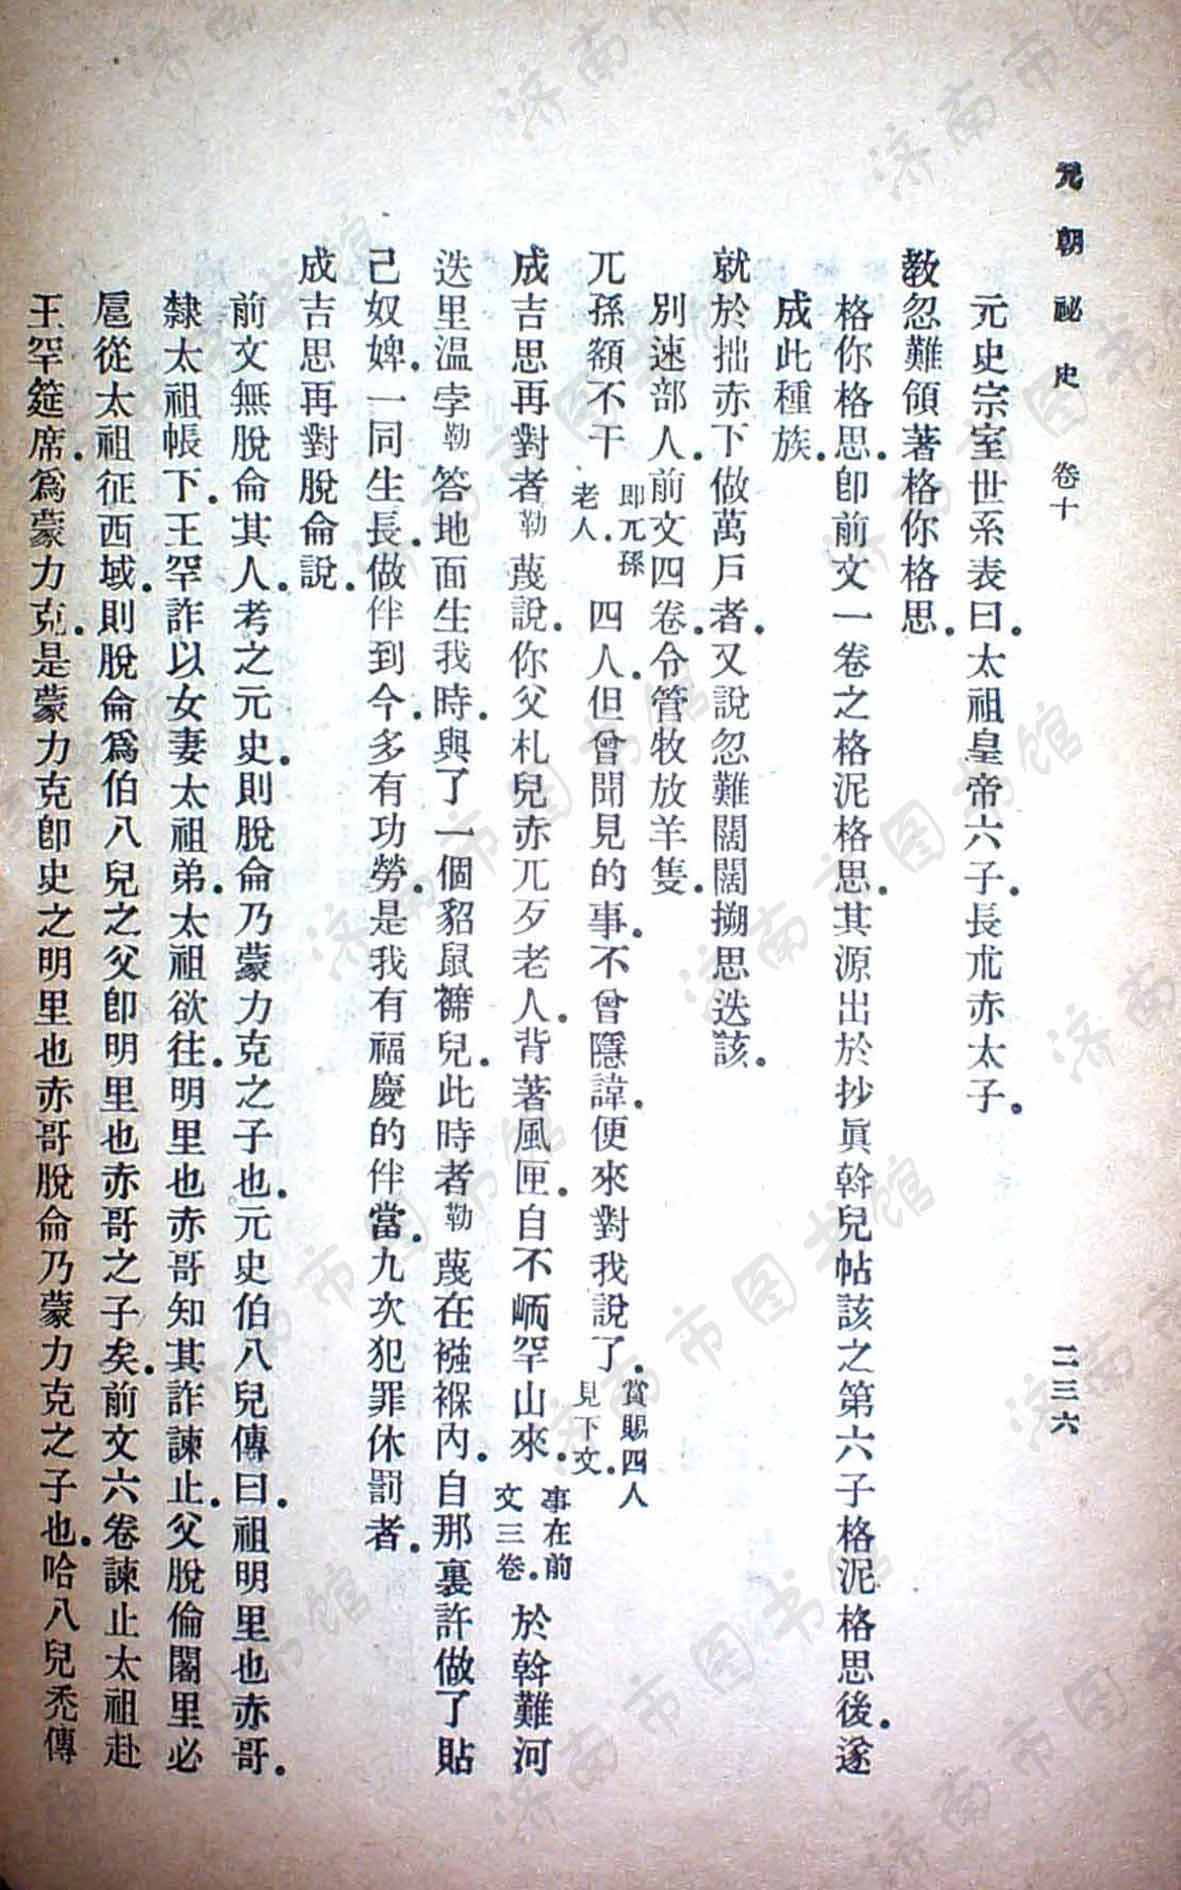 元朝祕史 卷十 二三六
元史宗室世系表曰。太祖皇帝六子。長朮赤太子。
教忽難領著格你格思。
格你格思。卽前文一卷之格泥格思。其源出於抄眞斡兒帖該之第六子格泥格思後。遂
成此種族。
就於拙赤下做萬戶者。又說忽難闊闊搠思迭該。
別速部人。前文四卷。令管牧放羊隻。
兀孫額不干 卽兀孫老人。 四人。但曾聞見的事。不曾隱諱。便來對我說了。賞賜四人見下文。
成吉思再對者勒蔑說。你父札兒赤兀歹老人。背著風匣。自不峏罕山來。事在前文三卷。於斡難河
迭里溫孛勒答地面生我時。與了一個貂鼠襁兒。此時者勒蔑在襁褓內。自那裏許做了貼
己奴婢。一同生長。做伴到今。多有功勞。是我有福慶的伴當。九次犯罪休罰者。
成吉思再對脫侖說。
前文無脫侖其人。考之元史。則脫侖乃蒙力克之子也。元史伯八兒傳曰。祖明里也赤哥。
隸太祖帳下。王罕詐以女妻太祖弟。太祖欲往。明里也赤哥知其詐諫止。父脫倫闍里必
扈從太祖征西域。則脫侖爲伯八兒之父卽明里也赤哥之子矣。前文六卷諫止太祖赴
王罕筵席。爲蒙力克。是蒙力克卽史之明里也赤哥脫侖乃蒙力克之子也。哈八兒禿傳